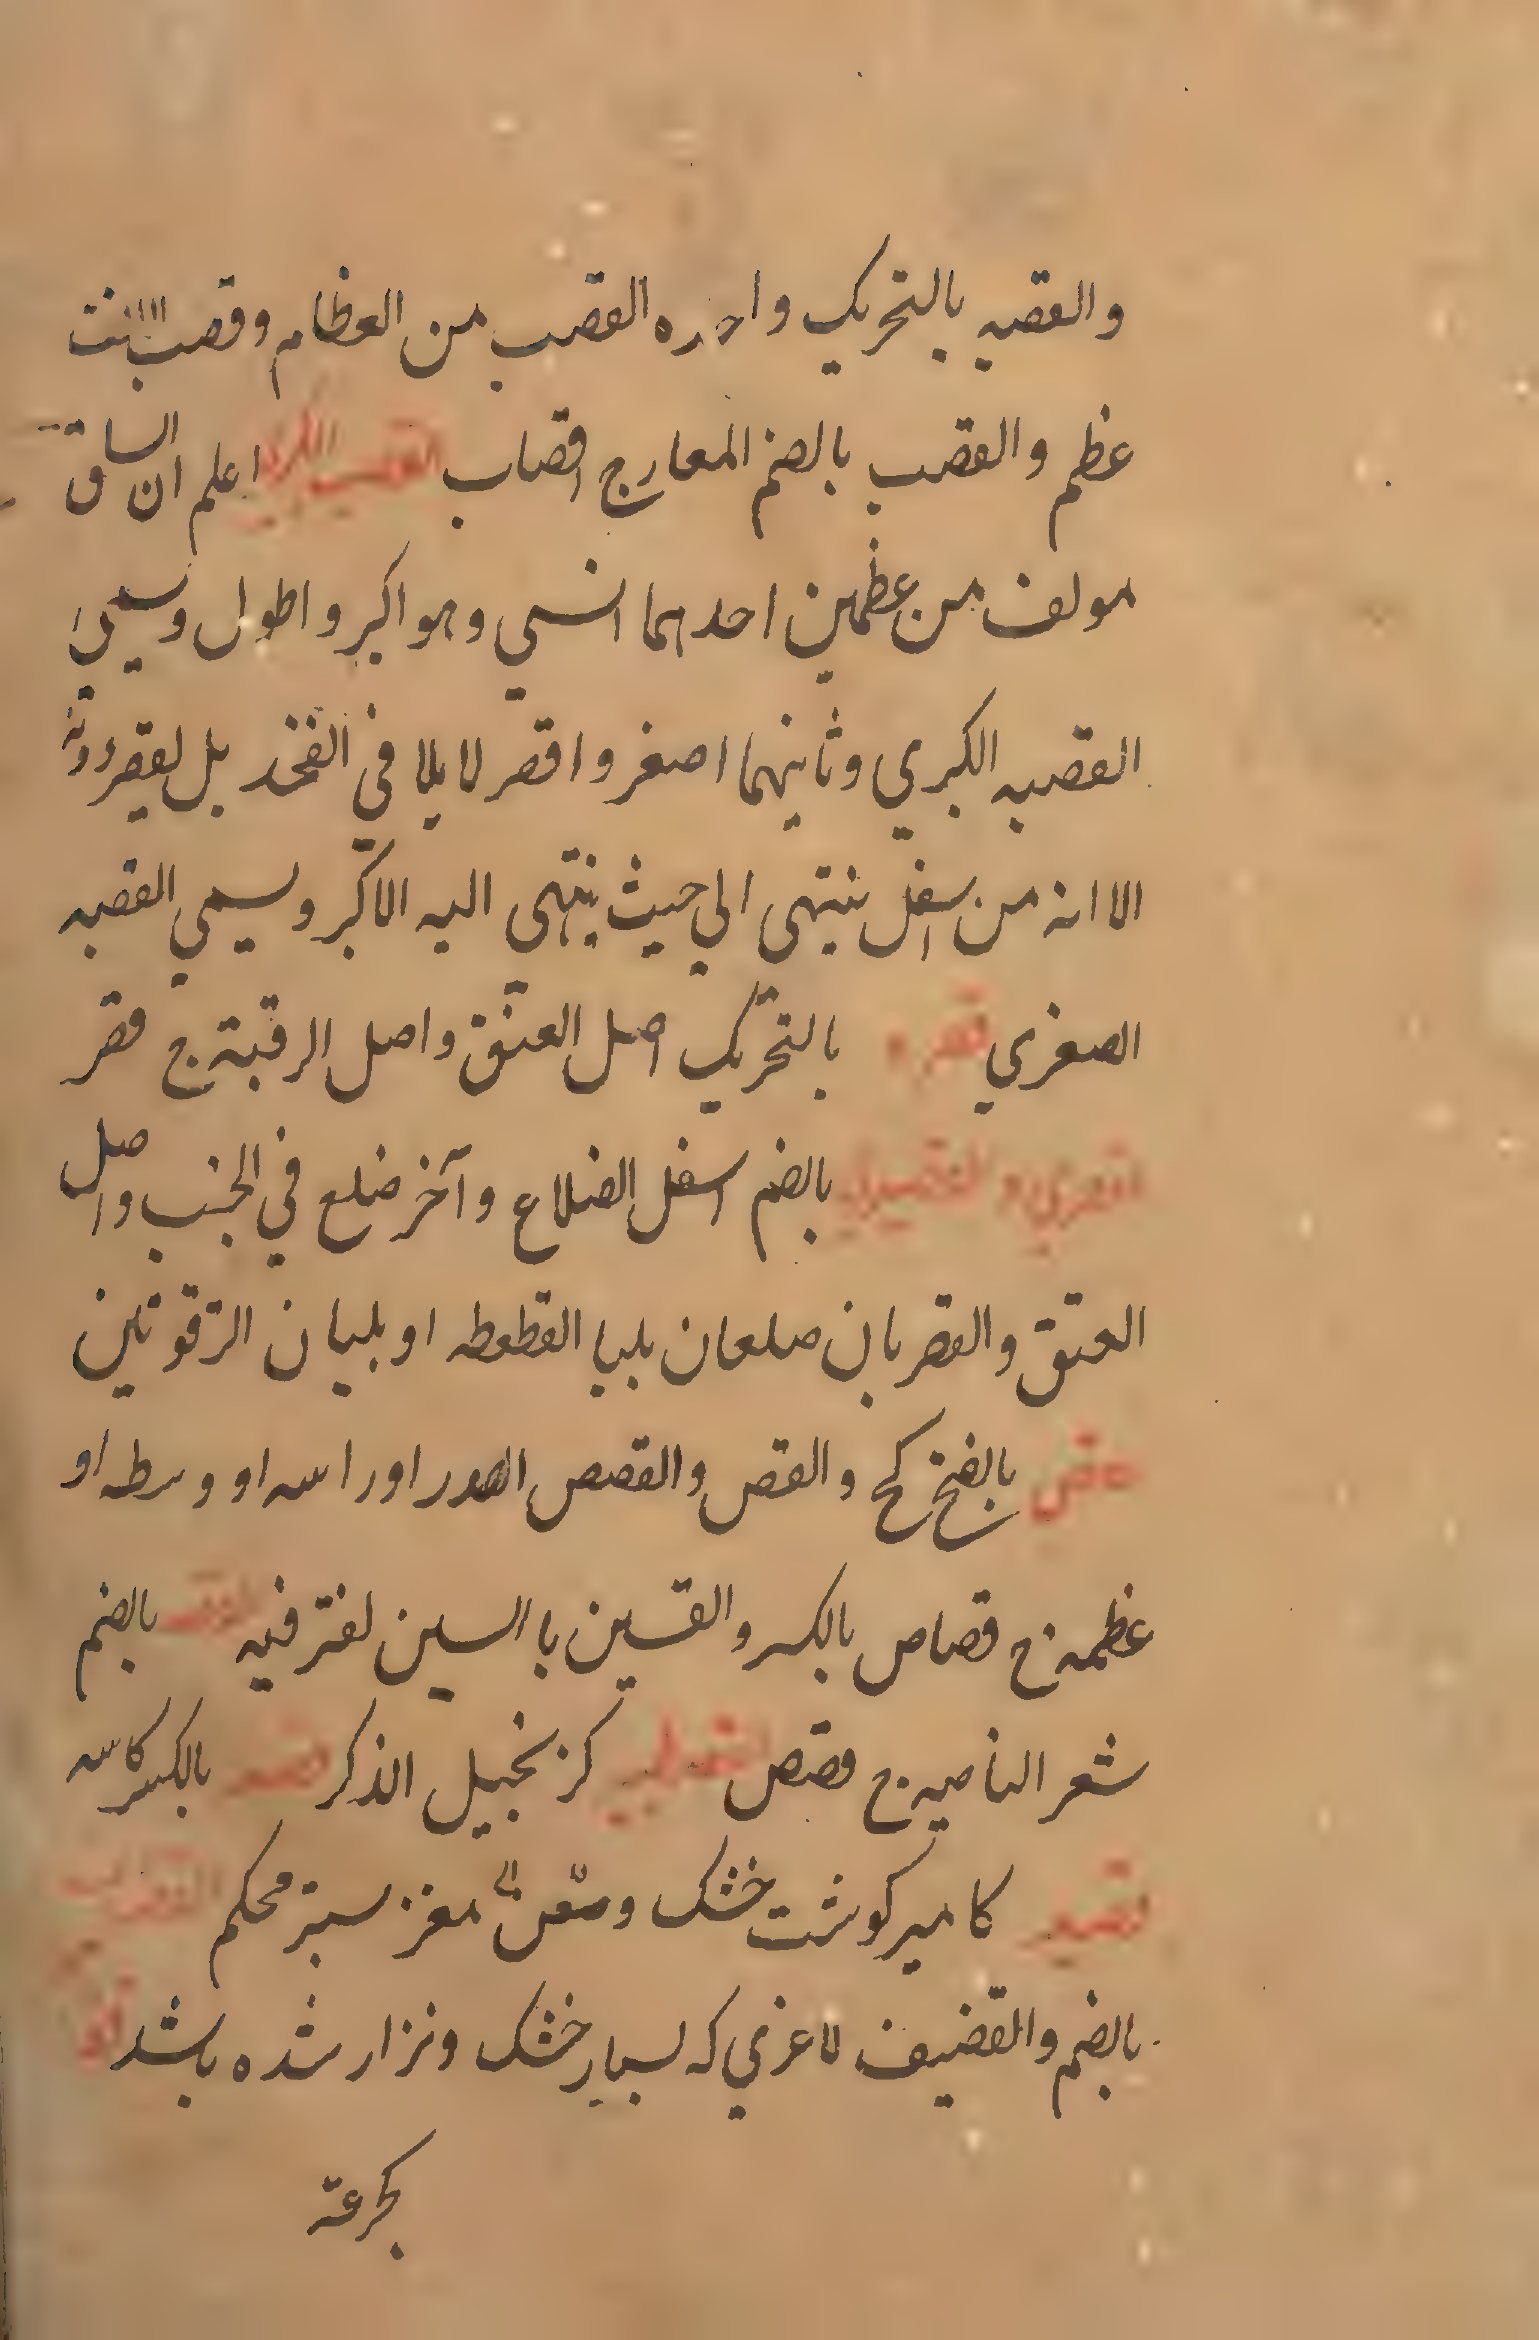 والقصبه بالتحریک واحده القصب من العظام وقصب الانف
عظم والقصب بالضم المعارج اقصاب القصبه الکبری اعلم ان الساق
مولف من عظمین احدهما انسی وهو اکبر واطول ویسمی
القصبه الکبری وثانیهما اصغر واقصر لا یلا فی الفخذ بل یقصر دونه
الا انه من سفل ینتهی الی حیث ینتهی الیه الاکبر ویسمی القصبه
الصغری قصره بالتحریک اصل العنق واصل الرقبة ج قصر
القصری و القصیری بالضم اسفل الضلاع وآخر ضلع فی الجنب واصل
العنق والقصریان ضلعان یلیا القطعطه او یلیان الترقوتین
قص بالفتح کح والقص والقصص الصدر او راسه او وسطه او
عظمه ج قصاص بالکسر والقسین باالسین لغتر فیه القصه بالضم
شعر الناصیه ج قصص کزنجبیل الذکر بالکسر کاسه
کامیر کوشت خشک مغز سبز محکم
بالضم والقضیف لاغری که بسیار خشک ونزار شده باشد
کجرعة